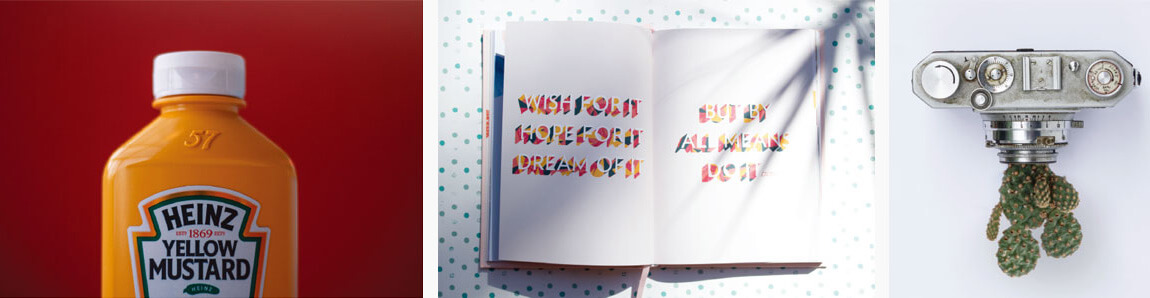 57
HEINZ
ESTD 1869 ESTD
YELLOW
MUSTARD
HEINZ
WISH FOR IT
HOPE FOR IT
DREAM OF IT
BUT BY
ALL MEANS
DO IT